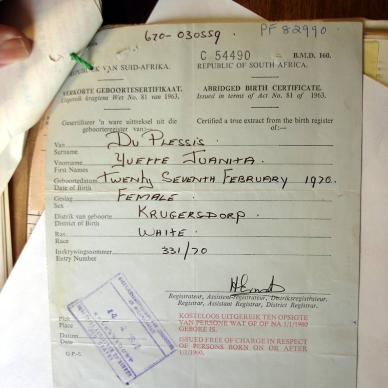 670-030559 PF 82990
C 54490 B.M.D. 160.
REPUBLIEK VAN SUID-AFRIKA. REPUBLIC OF SOUTH AFRICA.
VERKORTE GEBOORTESERTIFIKAAT. ABRIDGED BIRTH CERTIFICATE.
Uitgereik kragtens Wet No. 81 van 1963. Issued in terms of Act No. 81 of 1963.
Gesertifiseer 'n ware uittreksel uit die geboorteregister van:— Certified a true extract from the birth register of:—
Van
Surname DU PLESSIS.
Voorname
First Names YVETTE JUANITA.
Geboortedatum
Date of Birth TWENTY SEVENTH FEBRUARY 1970.
Geslag
Sex FEMALE.
Distrik van geboorte
District of Birth KRUGERSDORP.
Ras
Race WHITE.
Inskrywingsnommer
Entry Number 331/70
Registrateur, Assistent-registrateur, Distriksregistrateur.
Registrar, Assistant Registrar, District Registrar.
Plek
Place
Datum
Date
G.P.-S.
KOSTELOOS UITGEREIK TEN OPSIGTE
VAN PERSONE WAT OP OF NA 1/1/1960
GEBORE IS.
ISSUED FREE OF CHARGE IN RESPECT
OF PERSONS BORN ON OR AFTER
1/1/1960.